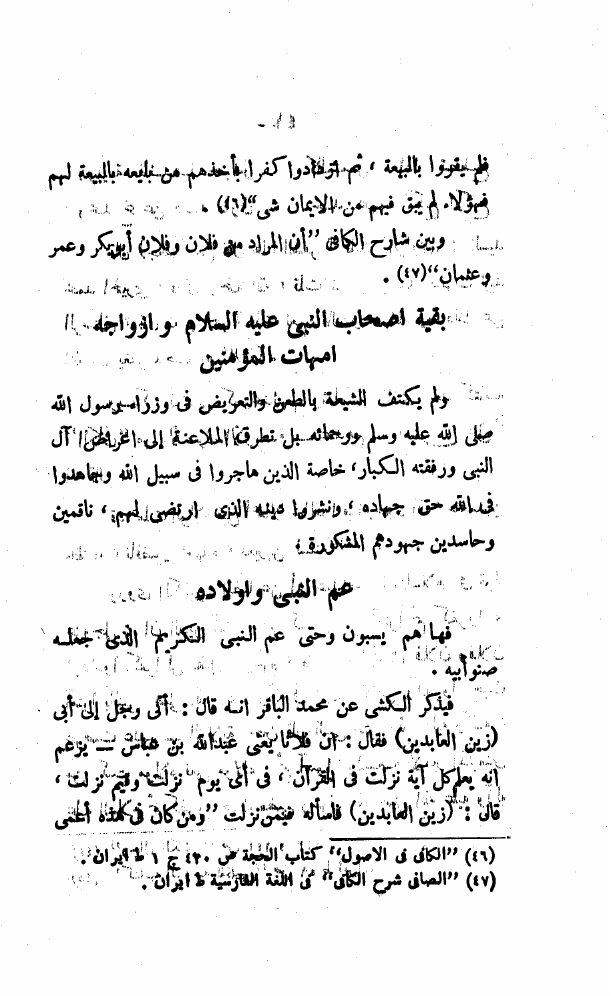 - ٤٦ -
فلم يقروا بالبيعة ، ثم ازدادوا كفرا بأخذهم من بايعه بالبيعة لهم
فهؤلاء لم يبق فيهم من الايمان شى“(٤٦) .
وبين شارح الكافى ”أن المراد من فلان وفلان أبوبكر وعمر
وعثمان“(٤٧) .
بقية اصحاب النبى عليه السلام و ازواجه
امهات المؤمنين
ولم يكتف الشيعة بالطعن والتعريض فى وزراء رسول الله
صلى الله عليه وسلم ورحمائه بل تطرق الملاعنة إلى اعراض آل
النبى ورفقته الكبار، خاصة الذين هاجروا فى سبيل الله وجاهدوا
فى الله حق جهاده ، ونشروا دينه الذى ارتضى لهم، ناقمين
وحاسدين جهودهم المشكورة ؛
عم النبى واولاده
فها هم يسبون وحتى عم النبى الكريم الذى جعله
صنو أبيه .
فيذكر الكشى عن محمد الباقر انه قال : أتى رجل إلى أبى
(زين العابدين) فقال : ان فلانا يعنى عبدالله بن عباس — يزعم
انه يعلم كل آية نزلت فى القرآن ، فى أى يوم نزلت وفيم نزلت ،
قال : (زين العابدين) فاسأله فيمن نزلت ”ومن كان فى هذه أعمى
(٤٦) ”الكافى فى الاصول“ كتاب الحجة ص ٤٢٠ ج ١ ط ايران .
(٤٧) ”الصافى شرح الكافى“ فى اللغة الفارسية ط ايران .